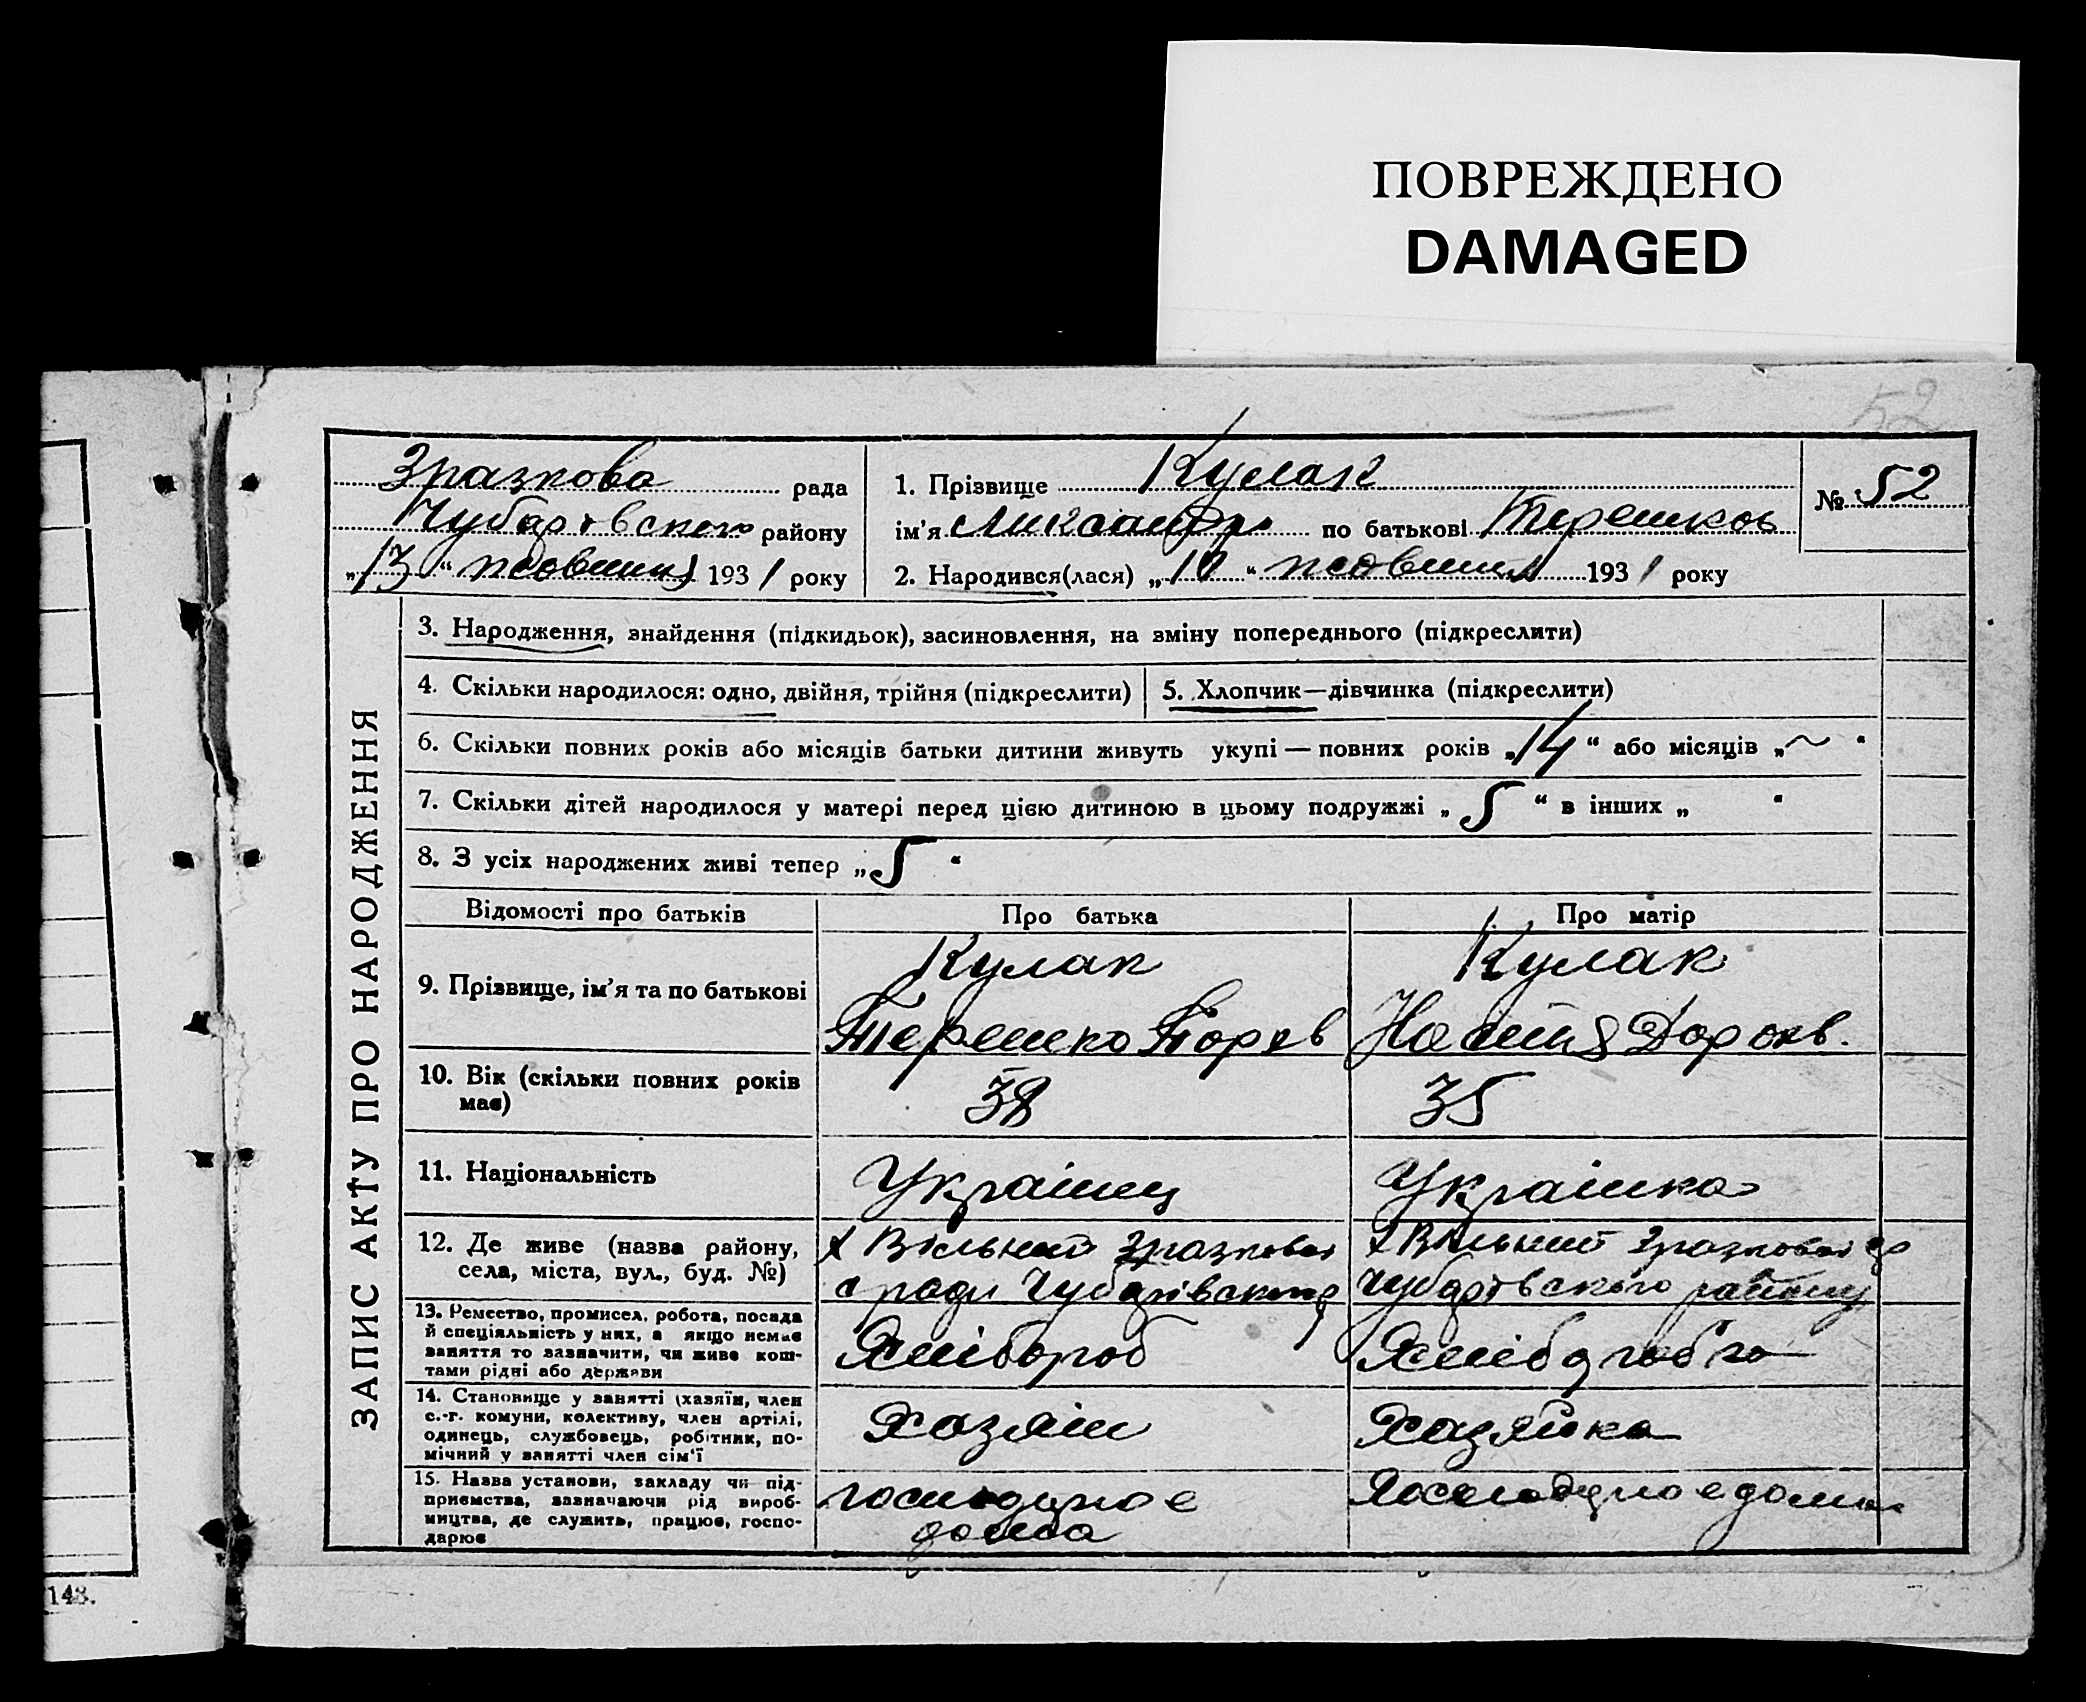 ПОВРЕЖДЕНО
DAMAGED
52
Зразкова рада
Чубарівського району
„13“ жовтня 1931 року
1. Прізвище Кулак
ім'я Олександр по батькові Терешков
2. Народився(лася) „10“ жовтня 1931 року
№ 52
ЗАПИС АКТУ ПРО НАРОДЖЕННЯ
3. Народження, знайдення (підкидьок), засиновлення, на зміну попереднього (підкреслити)
4. Скільки народилося: одно, двійня, трійня (підкреслити)
5. Хлопчик—дівчинка (підкреслити)
6. Скільки повних років або місяців батьки дитини живуть укупі — повних років „14“ або місяців „~“
7. Скільки дітей народилося у матері перед цією дитиною в цьому подружжі „5“ в інших „ “
8. З усіх народжених живі тепер „5“
Відомості про батьків
Про батька
Про матір
9. Прізвище, ім'я та по батькові
Кулак
Терешко
Кулак
10. Вік (скільки повних років
має)
38
35
11. Національність
Українець
Українка
12. Де живе (назва району,
села, міста, вул., буд. №)
х Вільний Зразкової
с ради Чубарівського
х Вільний Зразкової ср
Чубарівського району
13. Ремество, промисел, робота, посада
й спеціяльність у них, а якщо немає
заняття то зазначити, чи живе кош-
тами рідні або держави
Хлібороб
14. Становище у занятті (хазяїн, член
с.-г. комуни, колективу, член артілі,
одинець, службовець, робітник, по-
мічний у занятті член сім'ї
Хазяін
Хазяйка
15. Назва установи, закладу чи під-
приємства, зазначаючи рід вироб-
ництва, де служить, працює, госпо-
дарює
господарює
дома
господарює дома
143.